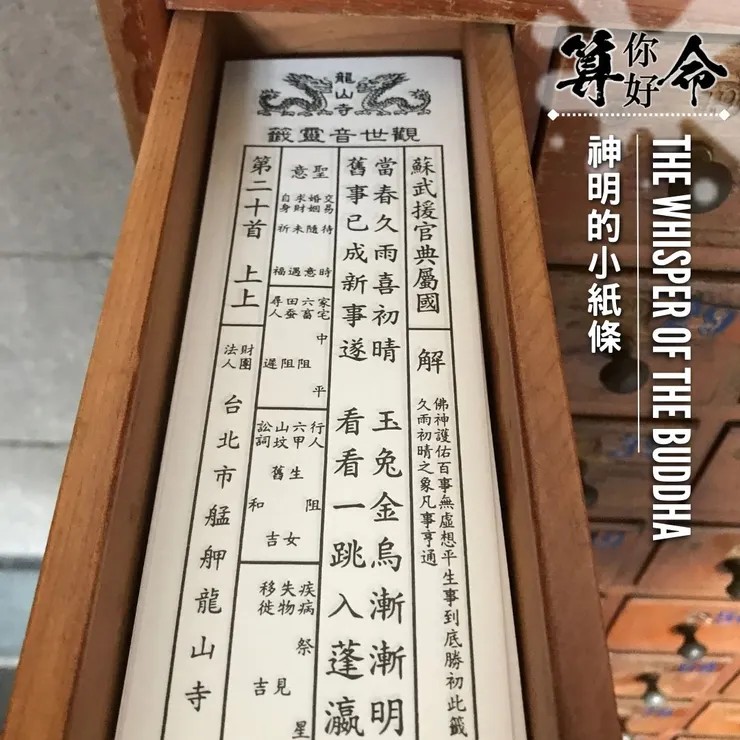 算你好命
THE WHISPER OF THE BUDDHA
神明的小紙條
龍山寺
觀世音靈籤
蘇武援官典屬國
解
佛神護佑百事無虛想平生事到底勝初此籤
久雨初晴之象凡事亨通
當春久雨喜初晴 玉兔金烏漸漸明
舊事已成新事遂 看看一跳入蓬瀛
聖意
交易待時
婚姻隨意
求財未遇
自身祈福
家宅中平
六畜阻
田蚕阻
尋人遲
行人阻
六甲生女
山坟舊吉
訟詞和
疾病祭星
失物見
移徙吉
第二十首 上上
財團法人 台北市艋舺龍山寺